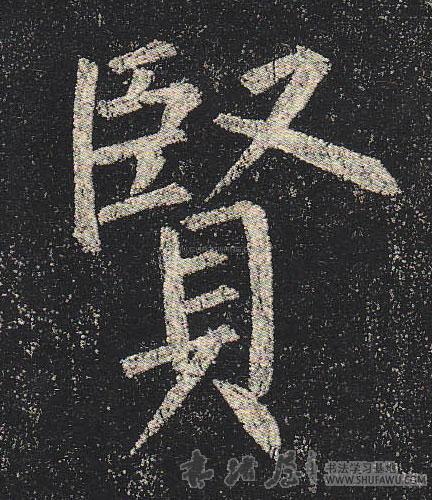 賢
书法屋
书法学习基地
WWW.SHUFAWU.COM